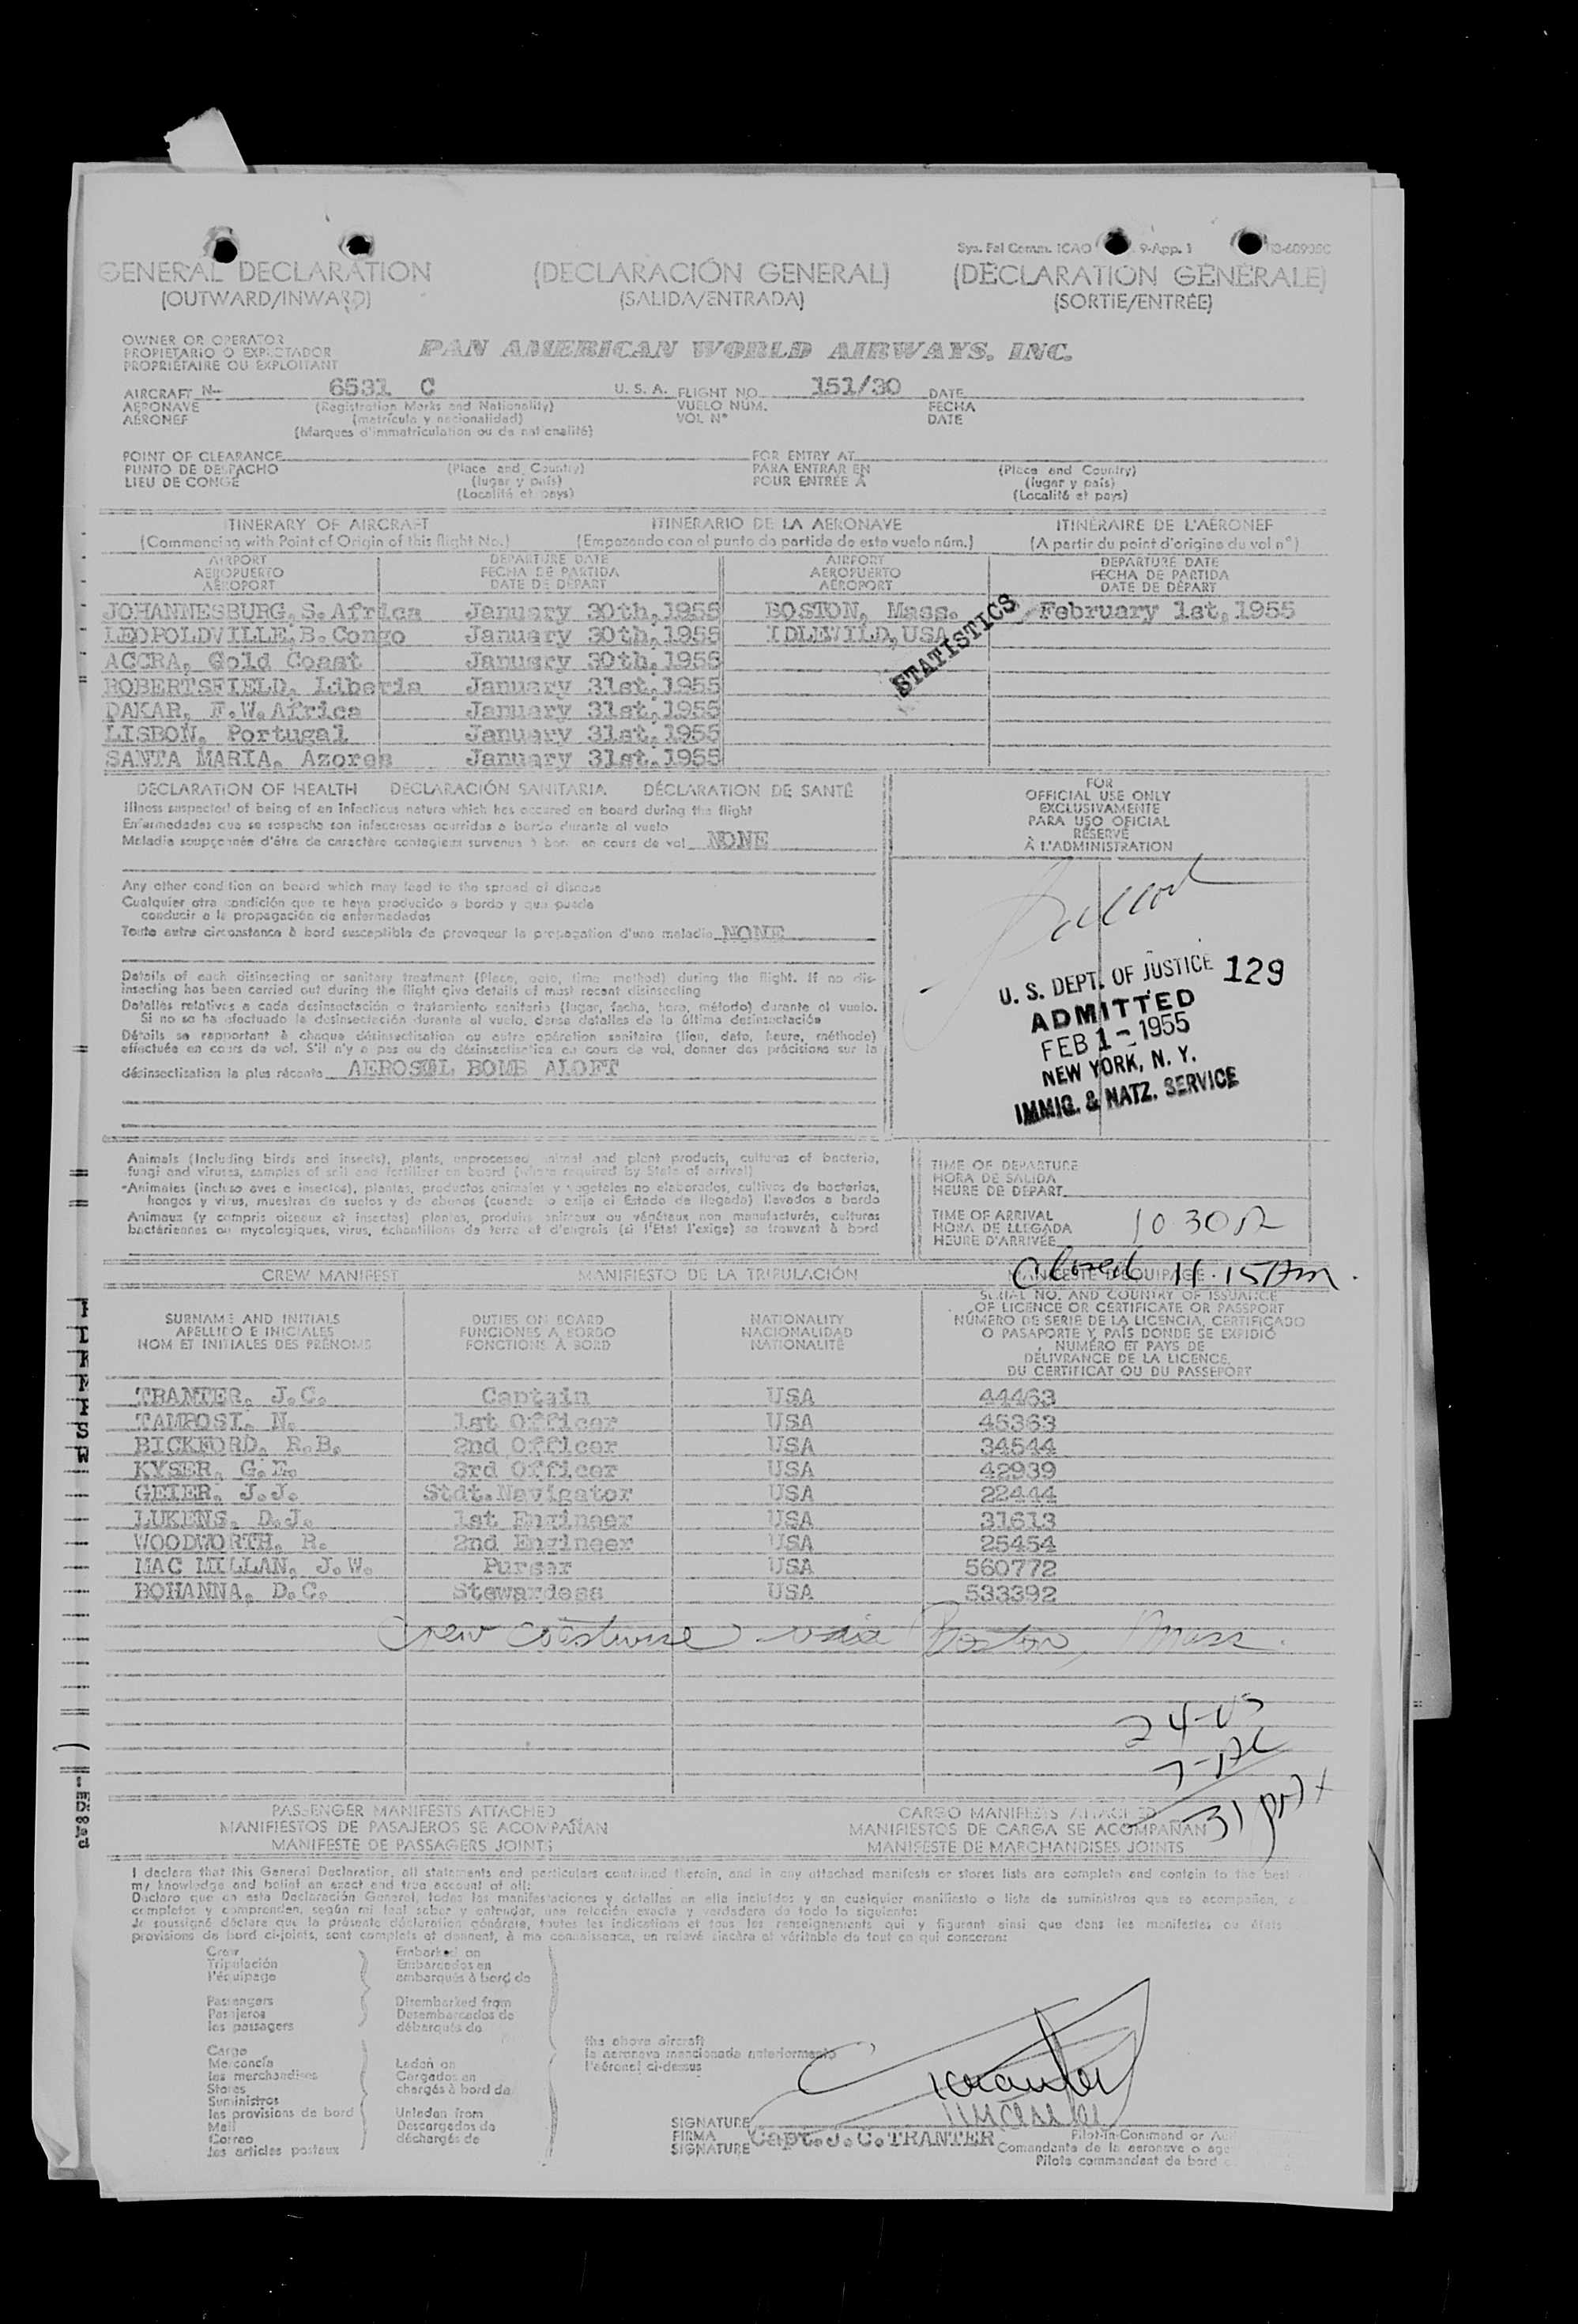 Sys. Fal Comm. ICAO 9-App. 1
GENERAL DECLARATION (DECLARACIÓN GENERAL) (DÉCLARATION GÉNÉRALE)
(OUTWARD/INWARD) (SALIDA/ENTRADA) (SORTIE/ENTRÉE)
OWNER OR OPERATOR
PROPIETARIO O EXPLOTADOR PAN AMERICAN WORLD AIRWAYS, INC.
PROPRIÉTAIRE OU EXPLOITANT
AIRCRAFT N- 6531 C U. S. A. FLIGHT NO. 151/30 DATE
AERONAVE (Registration Marks and Nationality) VUELO NÚM. FECHA
AÉRONEF (matrícula y nacionalidad) VOL N° DATE
(Marques d'immatriculation ou de nationalité)
POINT OF CLEARANCE FOR ENTRY AT
PUNTO DE DESPACHO (Place and Country) PARA ENTRAR EN (Place and Country)
LIEU DE CONGÉ (lugar y país) POUR ENTRÉE À (lugar y país)
(Localité et pays) (Localité et pays)
ITINERARY OF AIRCRAFT ITINERARIO DE LA AERONAVE ITINÉRAIRE DE L'AÉRONEF
(Commencing with Point of Origin of this flight No.) (Empezando con el punto de partida de este vuelo núm.) (A partir du point d'origine du vol n°)
AIRPORT DEPARTURE DATE AIRPORT DEPARTURE DATE
AEROPUERTO FECHA DE PARTIDA AEROPUERTO FECHA DE PARTIDA
AÉROPORT DATE DE DÉPART AÉROPORT DATE DE DÉPART
JOHANNESBURG, S.Africa January 30th, 1955 BOSTON, Mass. February 1st, 1955
LEOPOLDVILLE, B.Congo January 30th, 1955 IDLEWILD, USA
STATISTICS
ACCRA, Gold Coast January 30th, 1955
ROBERTSFIELD, Liberia January 31st, 1955
DAKAR, F.W.Africa January 31st, 1955
LISBON, Portugal January 31st, 1955
SANTA MARIA, Azores January 31st, 1955
DECLARATION OF HEALTH DECLARACIÓN SANITARIA DÉCLARATION DE SANTÉ
Illness suspected of being of an infectious nature which has occured on board during the flight
Enfermedades que se sospecha son infecciosas ocurridas a bordo durante el vuelo
Maladie soupçonnée d'être de caractère contagieux survenue à bord en cours de vol NONE
Any other condition on board which may lead to the spread of disease
Cualquier otra condición que se haya producido a bordo y que pueda
conducir a la propagación de enfermedades
Toute autre circonstance à bord susceptible de provoquer la propagation d'une maladie NONE
Details of each disinsecting or sanitary treatment (Place, date, time method) during the flight. If no dis-
insecting has been carried out during the flight give details of most recent disinsecting
Detalles relativos a cada desinsectación o tratamiento sanitario (lugar, fecha, hora, método) durante el vuelo.
Si no se ha efectuado la desinsectación durante el vuelo, dense detalles de la última desinsectación
Détails se rapportant à chaque désinsectisation ou autre opération sanitaire (lieu, date, heure, méthode)
effectuée en cours de vol. S'il n'y a pas eu de désinsectisation en cours de vol, donner des précisions sur la
désinsectisation la plus récente AEROSOL BOMB ALOFT
FOR
OFFICIAL USE ONLY
EXCLUSIVAMENTE
PARA USO OFICIAL
RÉSERVÉ
À L'ADMINISTRATION
U. S. DEPT. OF JUSTICE 129
ADMITTED
FEB 1 - 1955
NEW YORK, N. Y.
IMMIG. & NATZ. SERVICE
Animals (Including birds and insects), plants, unprocessed animal and plant products, cultures of bacteria,
fungi and viruses, samples of soil and fertilizer on board (where required by State of arrival)
Animales (incluso aves e insectos), plantas, productos animales y vegetales no elaborados, cultivos de bacterias,
hongos y virus, muestras de suelos y de abonos (cuando lo exija el Estado de llegada) llevados a bordo
Animaux (y compris oiseaux et insectes) plantes, produits animaux ou végétaux non manufacturés, cultures
bactériennes ou mycologiques, virus, échantillons de terre et d'engrais (si l'Etat l'exige) se trouvant à bord
TIME OF DEPARTURE
HORA DE SALIDA
HEURE DE DÉPART
TIME OF ARRIVAL
HORA DE LLEGADA 10 30
HEURE D'ARRIVÉE
Closed 11.15 Am.
CREW MANIFEST MANIFIESTO DE LA TRIPULACIÓN MANIFESTE D'ÉQUIPAGE
SURNAME AND INITIALS DUTIES ON BOARD NATIONALITY
APELLIDO E INICIALES FUNCIONES A BORDO NACIONALIDAD
NOM ET INITIALES DES PRÉNOMS FONCTIONS À BORD NATIONALITÉ
SERIAL NO. AND COUNTRY OF ISSUANCE
OF LICENCE OR CERTIFICATE OR PASSPORT
NÚMERO DE SERIE DE LA LICENCIA, CERTIFICADO
O PASAPORTE Y PAÍS DONDE SE EXPIDIÓ
NUMÉRO ET PAYS DE
DÉLIVRANCE DE LA LICENCE,
DU CERTIFICAT OU DU PASSEPORT
TRANTER, J.C. Captain USA 44463
TAMPOSI, N. 1st Officer USA 45363
BICKFORD, R.B. 2nd Officer USA 34544
KYSER, G.E. 3rd Officer USA 42939
GEIER, J.J. Stdt.Navigator USA 22444
LUKENS, D.J. 1st Engineer USA 31613
WOODWORTH, R. 2nd Engineer USA 25454
MAC MILLAN, J.W. Purser USA 560772
BOHANNA, D.C. Stewardess USA 533392
Crew coastwise via Boston, Mass.
24-US
31
PASSENGER MANIFESTS ATTACHED CARGO MANIFESTS ATTACHED
MANIFIESTOS DE PASAJEROS SE ACOMPAÑAN MANIFIESTOS DE CARGA SE ACOMPAÑAN
MANIFESTE DE PASSAGERS JOINTS MANIFESTE DE MARCHANDISES JOINTS
I declare that this General Declaration, all statements and particulars contained therein, and in any attached manifests or stores lists are complete and contain to the best
my knowledge and belief an exact and true account of all:
Declaro que en esta Declaración General, todas las manifestaciones y detalles en ella incluidos y en cualquier manifiesto o lista de suministros que se acompañan,
completos y comprenden, según mi leal saber y entender, una relación exacta y verdadera de todo lo siguiente:
Je soussigné déclare que la présente déclaration générale, toutes les indications et tous les renseignements qui y figurent ainsi que dans les manifestes ou états
provisions de bord ci-joints, sont complets et donnent, à ma connaissance, un relevé sincère et véritable de tout ce qui concerne:
Crew Embarked on
Tripulación Embarcados en
l'équipage embarqués à bord de
Passengers Disembarked from
Pasajeros Desembarcados de
les passagers débarqués de
the above aircraft
la aeronave mencionada anteriormente
l'aéronef ci-dessus
Cargo
Mercancía Laden on
les marchandises Cargados en
Stores chargés à bord de
Suministros
les provisions de bord Unladen from
Mail Descargados de
Correo déchargés de
les articles postaux
SIGNATURE
FIRMA Capt. J. C. TRANTER Pilot-in-Command or
SIGNATURE Comandante de la aeronave o
Pilote commandant de bord